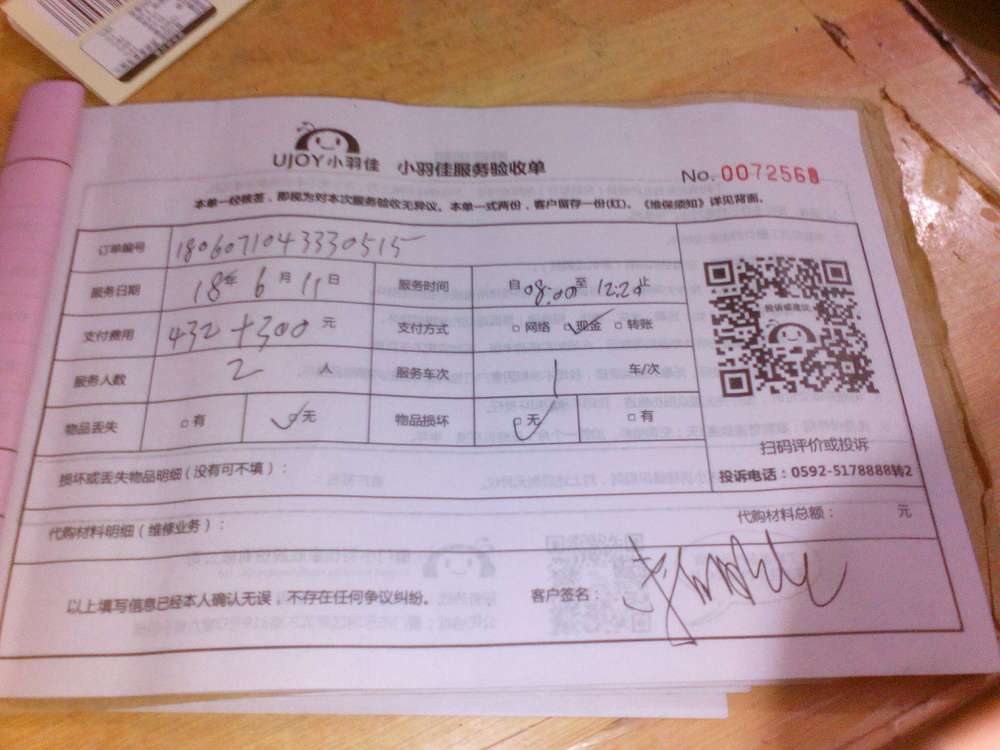 UJOY小羽佳 小羽佳服务验收单 No.0072568
本单一经核签，即视为对本次服务验收无异议。本单一式两份，客户留存一份(红)。《维保须知》详见背面。
订单编号 1806071043330515
服务日期 18年6月11日 服务时间 自08:00至12:20止
支付费用 432+300元 支付方式 □网络 ☑现金 □转账
服务人数 2人 服务车次 1 车/次
物品丢失 □有 ☑无 物品损坏 ☑无 □有
投诉或建议
扫码评价或投诉
投诉电话：0592-5178888转2
损坏或丢失物品明细(没有可不填)：
代购材料明细(维修业务)： 代购材料总额： 元
以上填写信息已经本人确认无误，不存在任何争议纠纷。 客户签名：